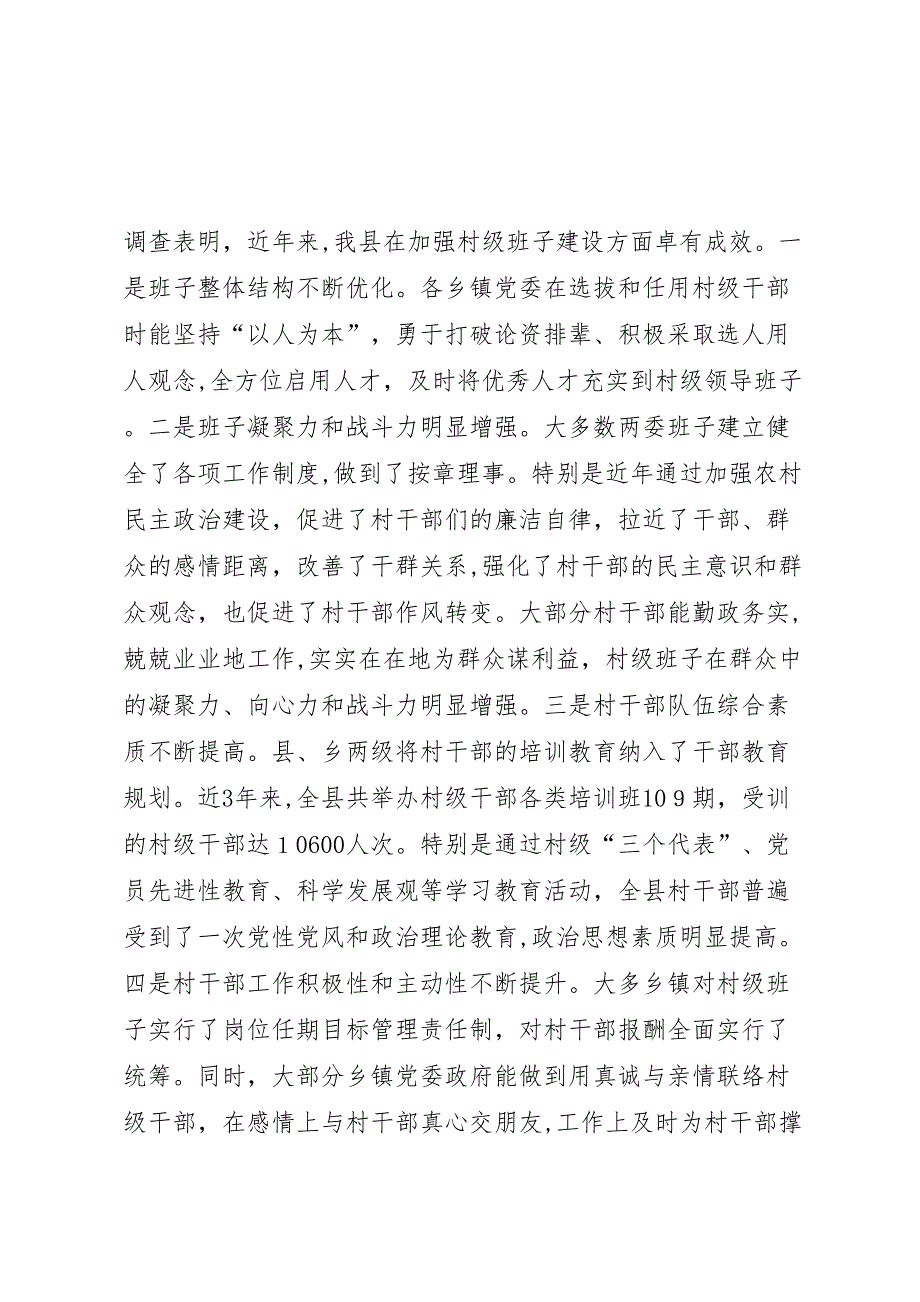 调查表明，近年来,我县在加强村级班子建设方面卓有成效。一
是班子整体结构不断优化。各乡镇党委在选拔和任用村级干部
时能坚持“以人为本”，勇于打破论资排辈、积极采取选人用
人观念,全方位启用人才，及时将优秀人才充实到村级领导班子
。二是班子凝聚力和战斗力明显增强。大多数两委班子建立健
全了各项工作制度,做到了按章理事。特别是近年通过加强农村
民主政治建设，促进了村干部们的廉洁自律，拉近了干部、群
众的感情距离，改善了干群关系,强化了村干部的民主意识和群
众观念，也促进了村干部作风转变。大部分村干部能勤政务实,
兢兢业业地工作,实实在在地为群众谋利益，村级班子在群众中
的凝聚力、向心力和战斗力明显增强。三是村干部队伍综合素
质不断提高。县、乡两级将村干部的培训教育纳入了干部教育
规划。近3年来,全县共举办村级干部各类培训班10 9 期，受训
的村级干部达 1 0600人次。特别是通过村级“三个代表”、党
员先进性教育、科学发展观等学习教育活动，全县村干部普遍
受到了一次党性党风和政治理论教育,政治思想素质明显提高。
四是村干部工作积极性和主动性不断提升。大多乡镇对村级班
子实行了岗位任期目标管理责任制，对村干部报酬全面实行了
统筹。同时，大部分乡镇党委政府能做到用真诚与亲情联络村
级干部，在感情上与村干部真心交朋友,工作上及时为村干部撑